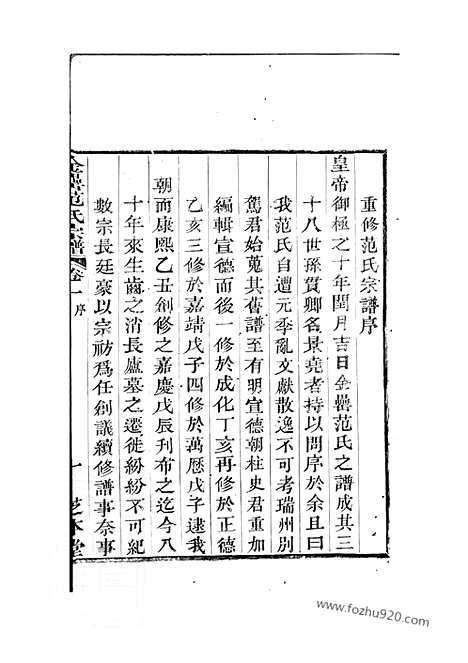 重修范氏宗譜序
皇帝御極之十年閏月吉日金罍范氏之譜成其三
十八世孫貫卿名景堯者持以問序於余且曰
我范氏自遭元季亂文獻散逸不可考瑞州別
駕君始蒐其舊譜至有明宣德朝柱史君重加
編輯宣德而後一修於成化丁亥再修於正德
乙亥三修於嘉靖戊子四修於萬厯戊子逮我
朝而康熙乙丑創修之嘉慶戊辰刊布之迄今八
十年來生齒之消長廬墓之遷徙紛紛不可紀
數宗長廷豪以宗祊爲任創議續修譜事奈事
金罍范氏宗譜 卷一 序 一 芝本堂
www.fozhu920.com